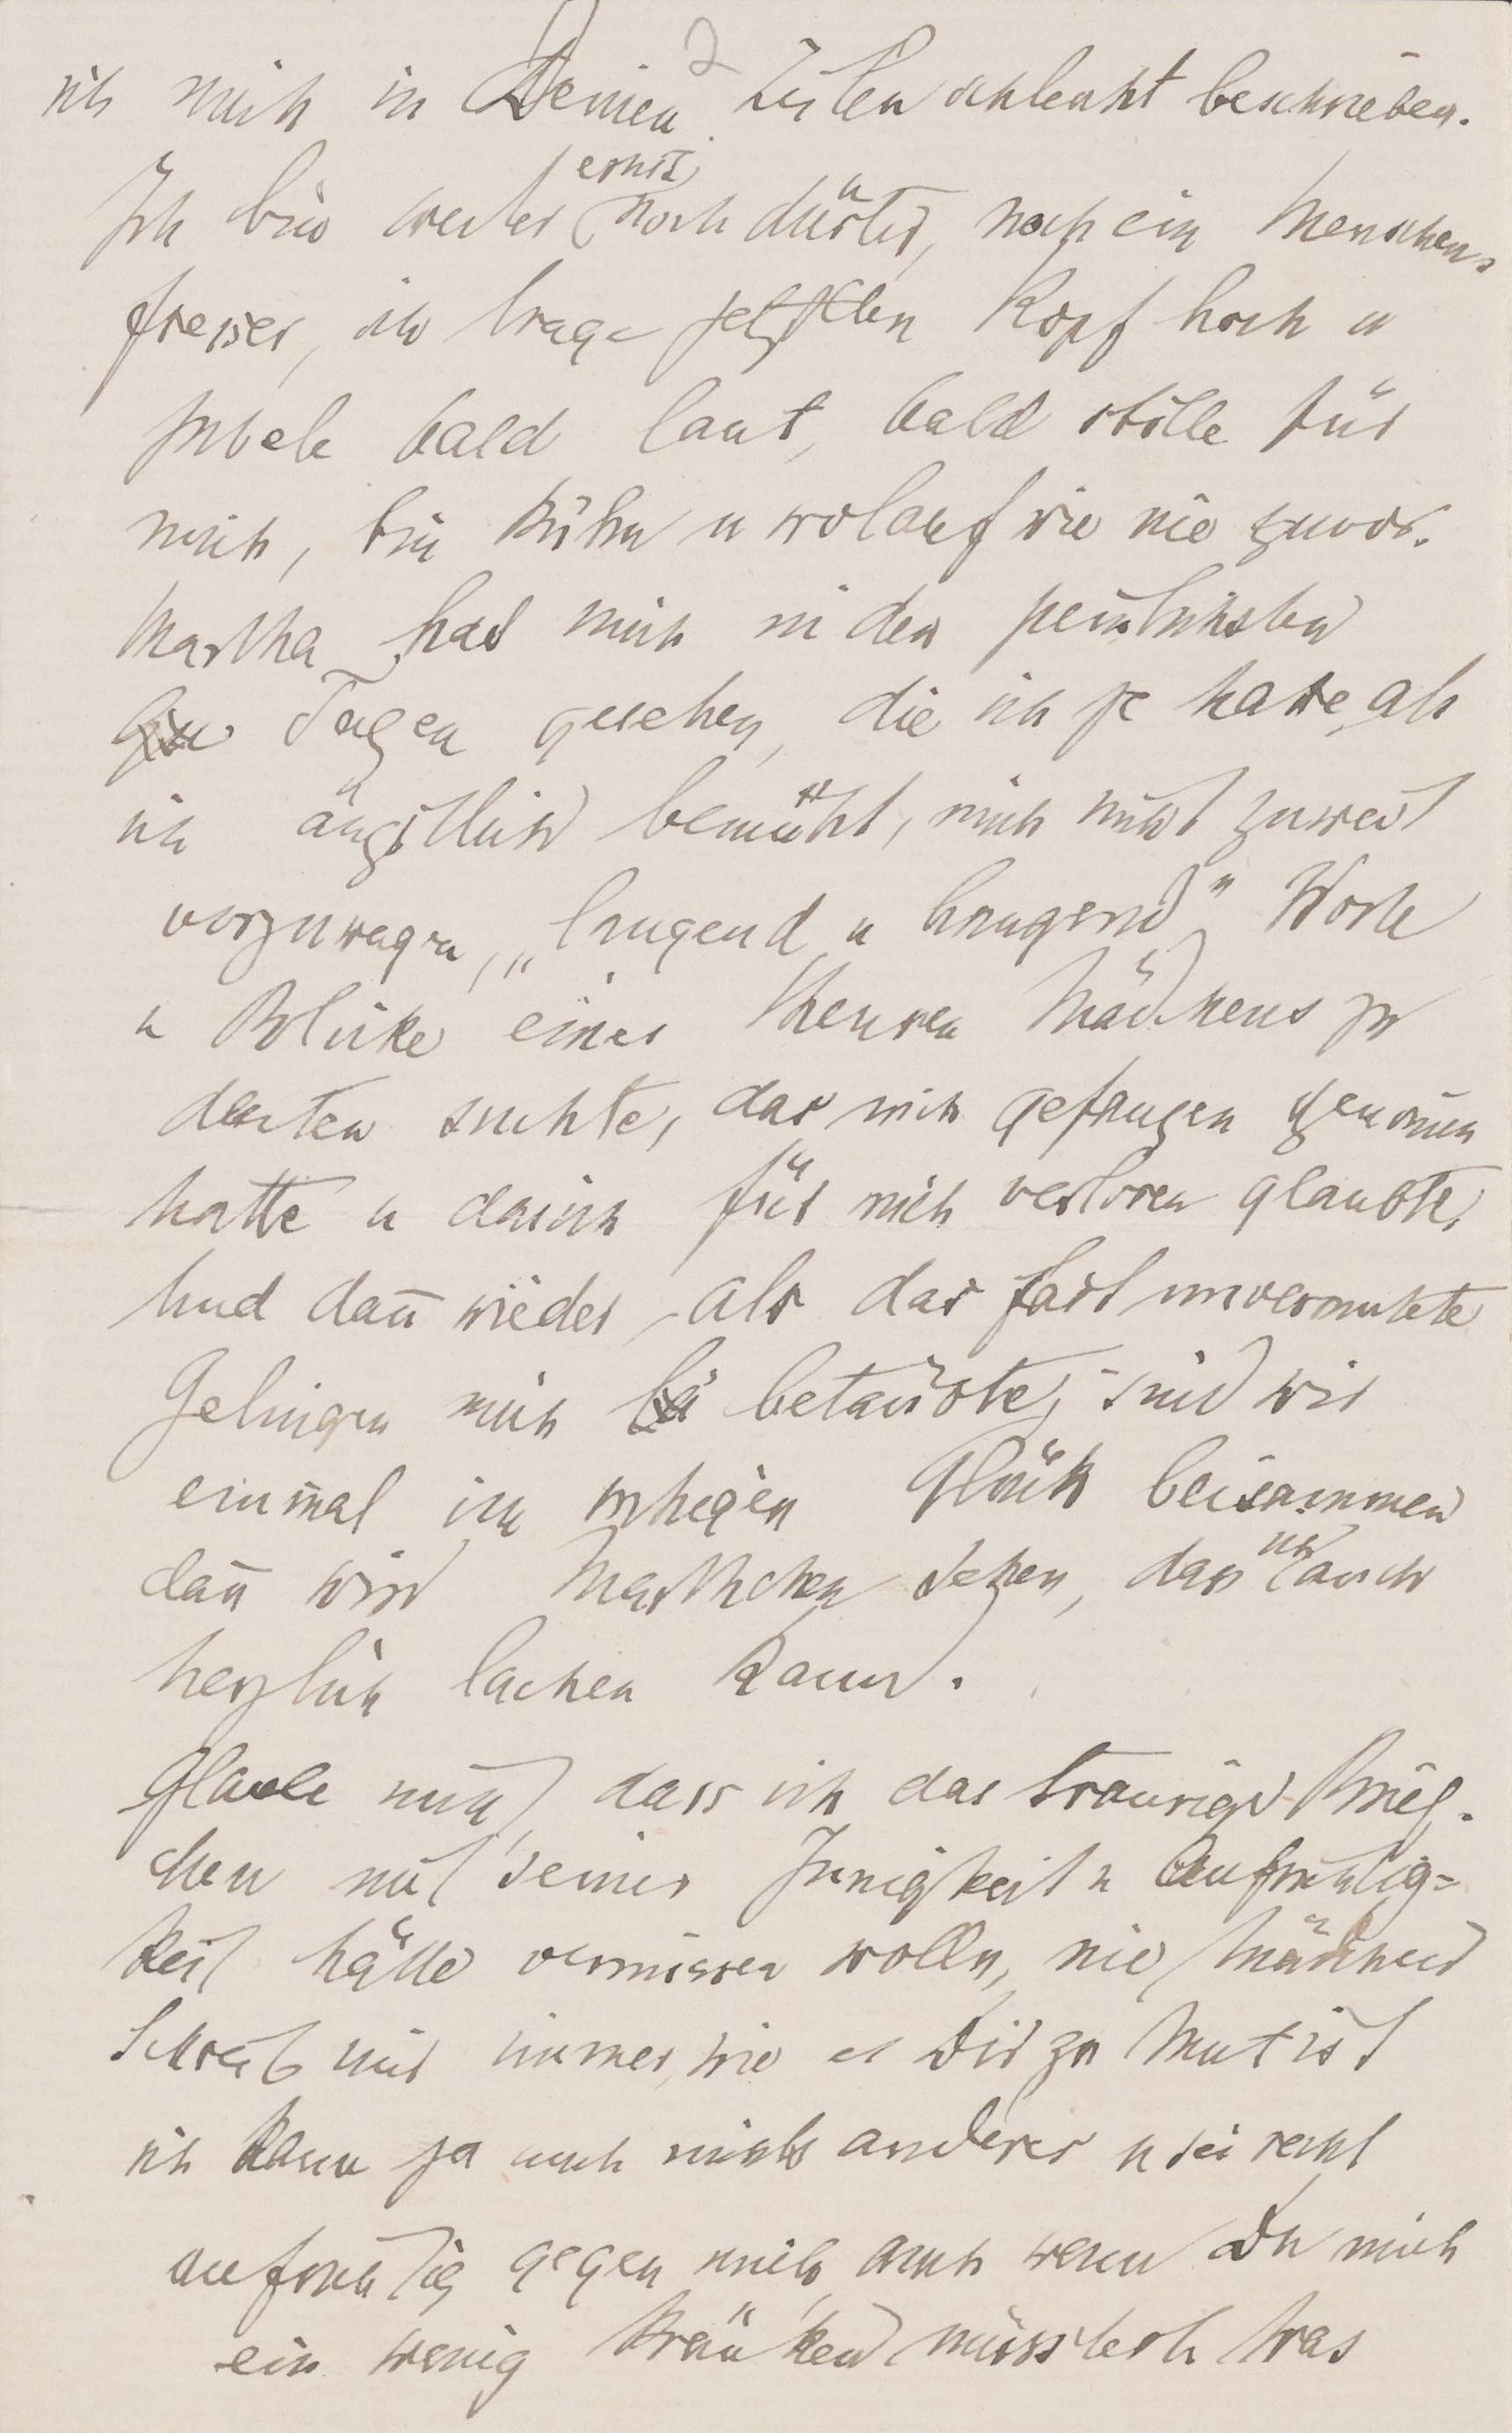 2
ich mich in Deinen Zeilen schlecht beschrieben.
Ich bin weder ernst noch düster, noch ein Menschen-
fresser, ich trage jetzt den Kopf hoch u
juble bald laut, bald stille für
mich, bin kühn u wolauf wie nie zuvor.
Martha hat mich in den peinlichsten
Tagen gesehen, die ich je hatte, als
ich ängstlich bemüht, mich nicht zuweit
vorzuwagen, „langend u bangend" Worte
u Blicke eines theuren Mädchens zu
deuten suchte, das mich gefangen genom̅en
hatte u doch für mich verloren glaubte,
Und dan̅ wieder, als das fast unvermutete
Gelingen mich betäubte, sind wir
einmal in ruhigem Glück beisammen
dan̅ wird Marthchen sehen, dass ich auch
herzlich lachen kann.
Glaube nicht, dass ich das traurige Brief-
chen mit seiner Innigkeit u Aufrichtig-
keit hätte vermissen wollen, nie, Mädchen
Schreib mir immer, wie es Dir zu Mut ist
ich kann ja auch nichts anderes u sei recht
aufrichtig gegen mich, auch wenn Du mich
ein wenig kränken müsstest. Was